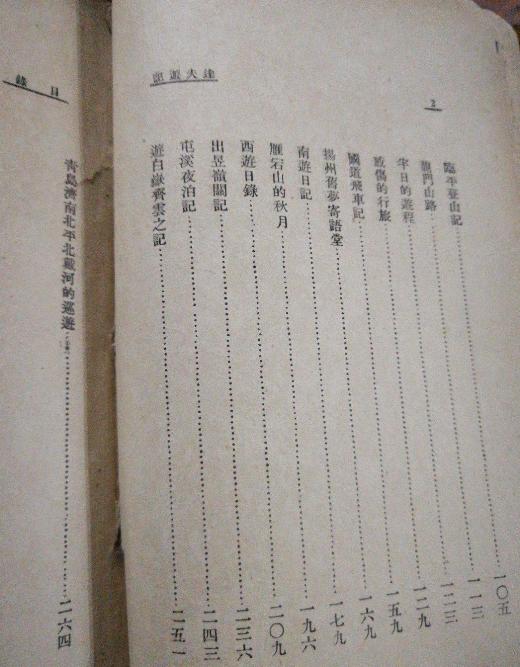 達夫遊記
2
臨平登山記……一〇五
龍門山路……一一三
半日的遊程……一二三
感傷的行旅……一二九
國道飛車記……一五九
揚州舊夢寄語堂……一六九
南遊日記……一七九
雁宕山的秋月……一九六
西遊日錄……二〇九
出昱嶺關記……二三六
屯溪夜泊記……二四三
遊白嶽齊雲之記……二五一
目錄
青島濟南北平北戴河的巡遊……二六四